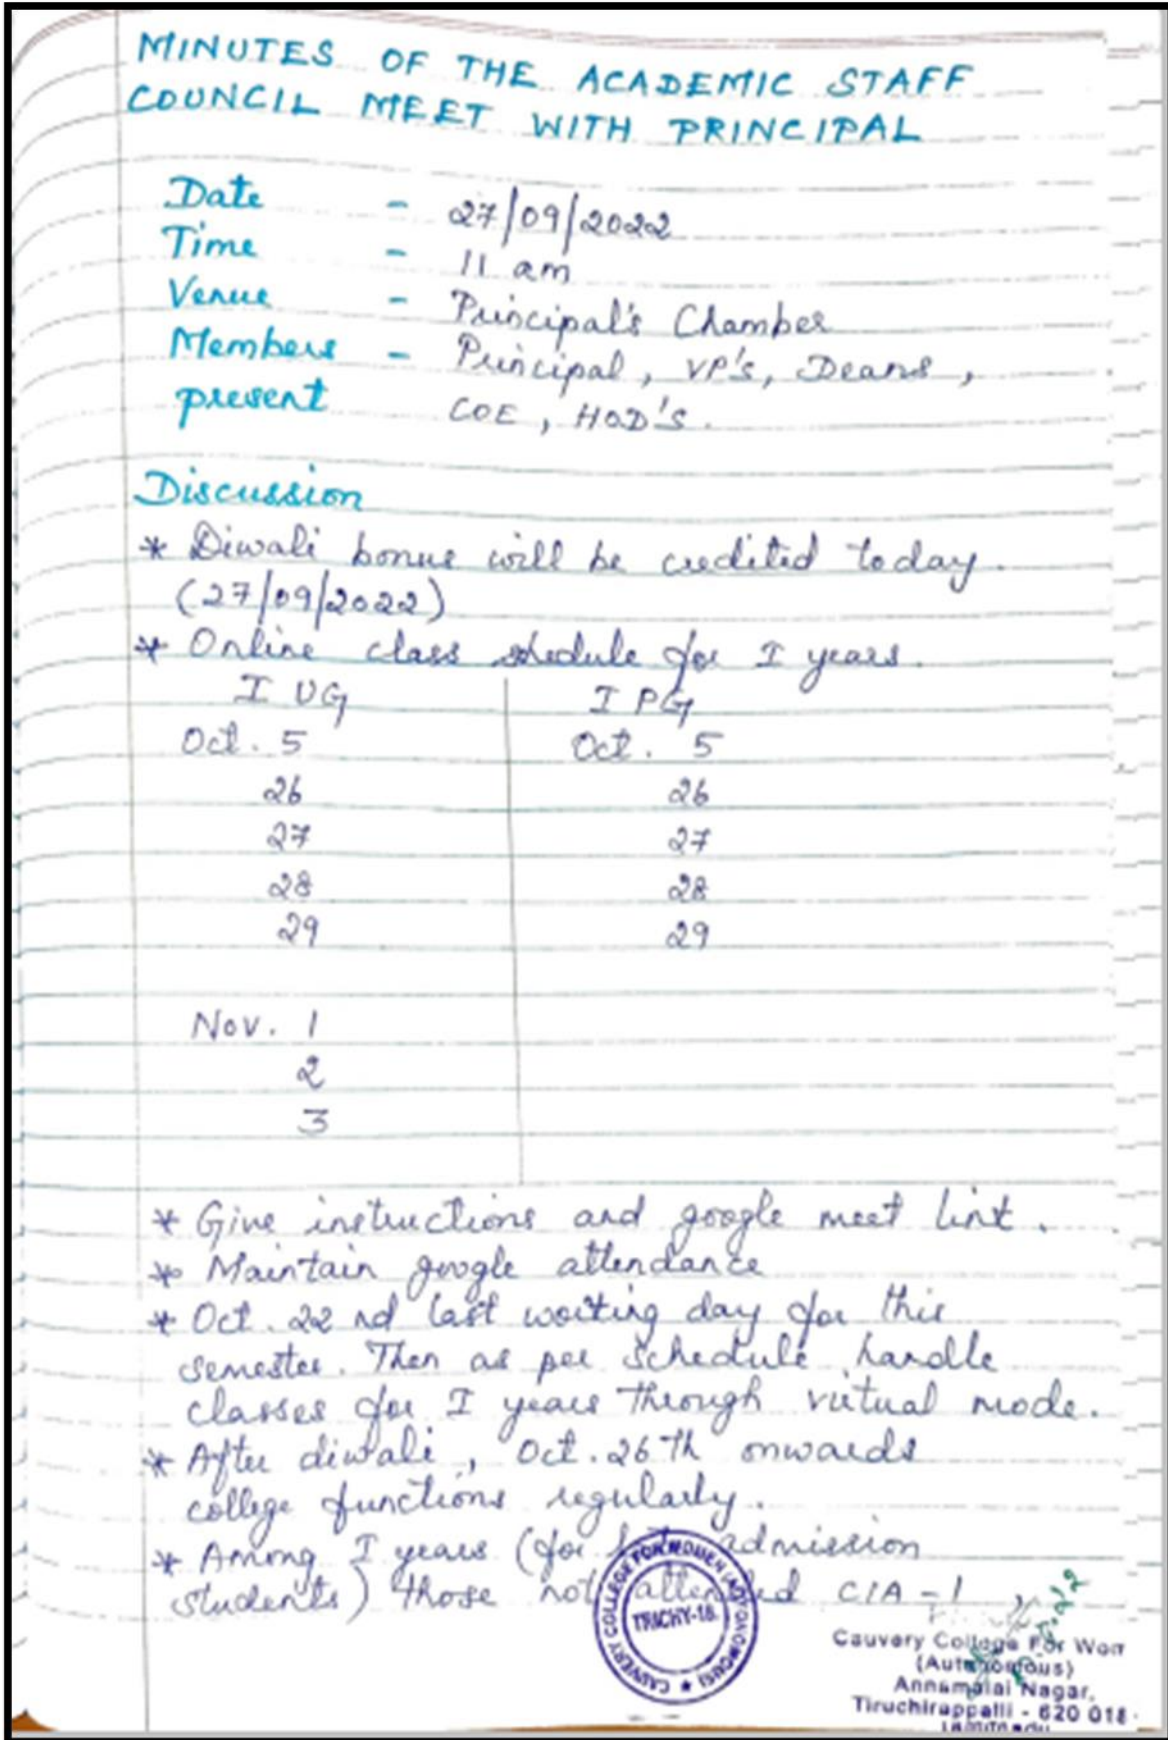 MINUTES OF THE ACADEMIC STAFF
COUNCIL MEET WITH PRINCIPAL
Date - 27/09/2022
Time - 11 am
Venue - Principal's Chamber
Members - Principal, VP's, Deans,
present COE, HOD'S.
Discussion
* Diwali bonus will be credited today.
(27/09/2022)
* Online class shedule for I years.
I UG I PG
Oct. 5 Oct. 5
26 26
27 27
28 28
29 29
Nov. 1
2
3
* Give instructions and google meet link.
* Maintain google attendance
* Oct. 22nd last working day for this
semester. Then as per schedule handle
classes for I years through virtual mode.
* After diwali, Oct. 26th onwards
college functions regularly.
* Among I years (for admission
students) those not attended CIA - 1,
CAUVERY COLLEGE FOR WOMEN (AUTONOMOUS)
TRICHY-18
Cauvery College For Wom
(Autonomous)
Annamalai Nagar,
Tiruchirappalli - 620 018